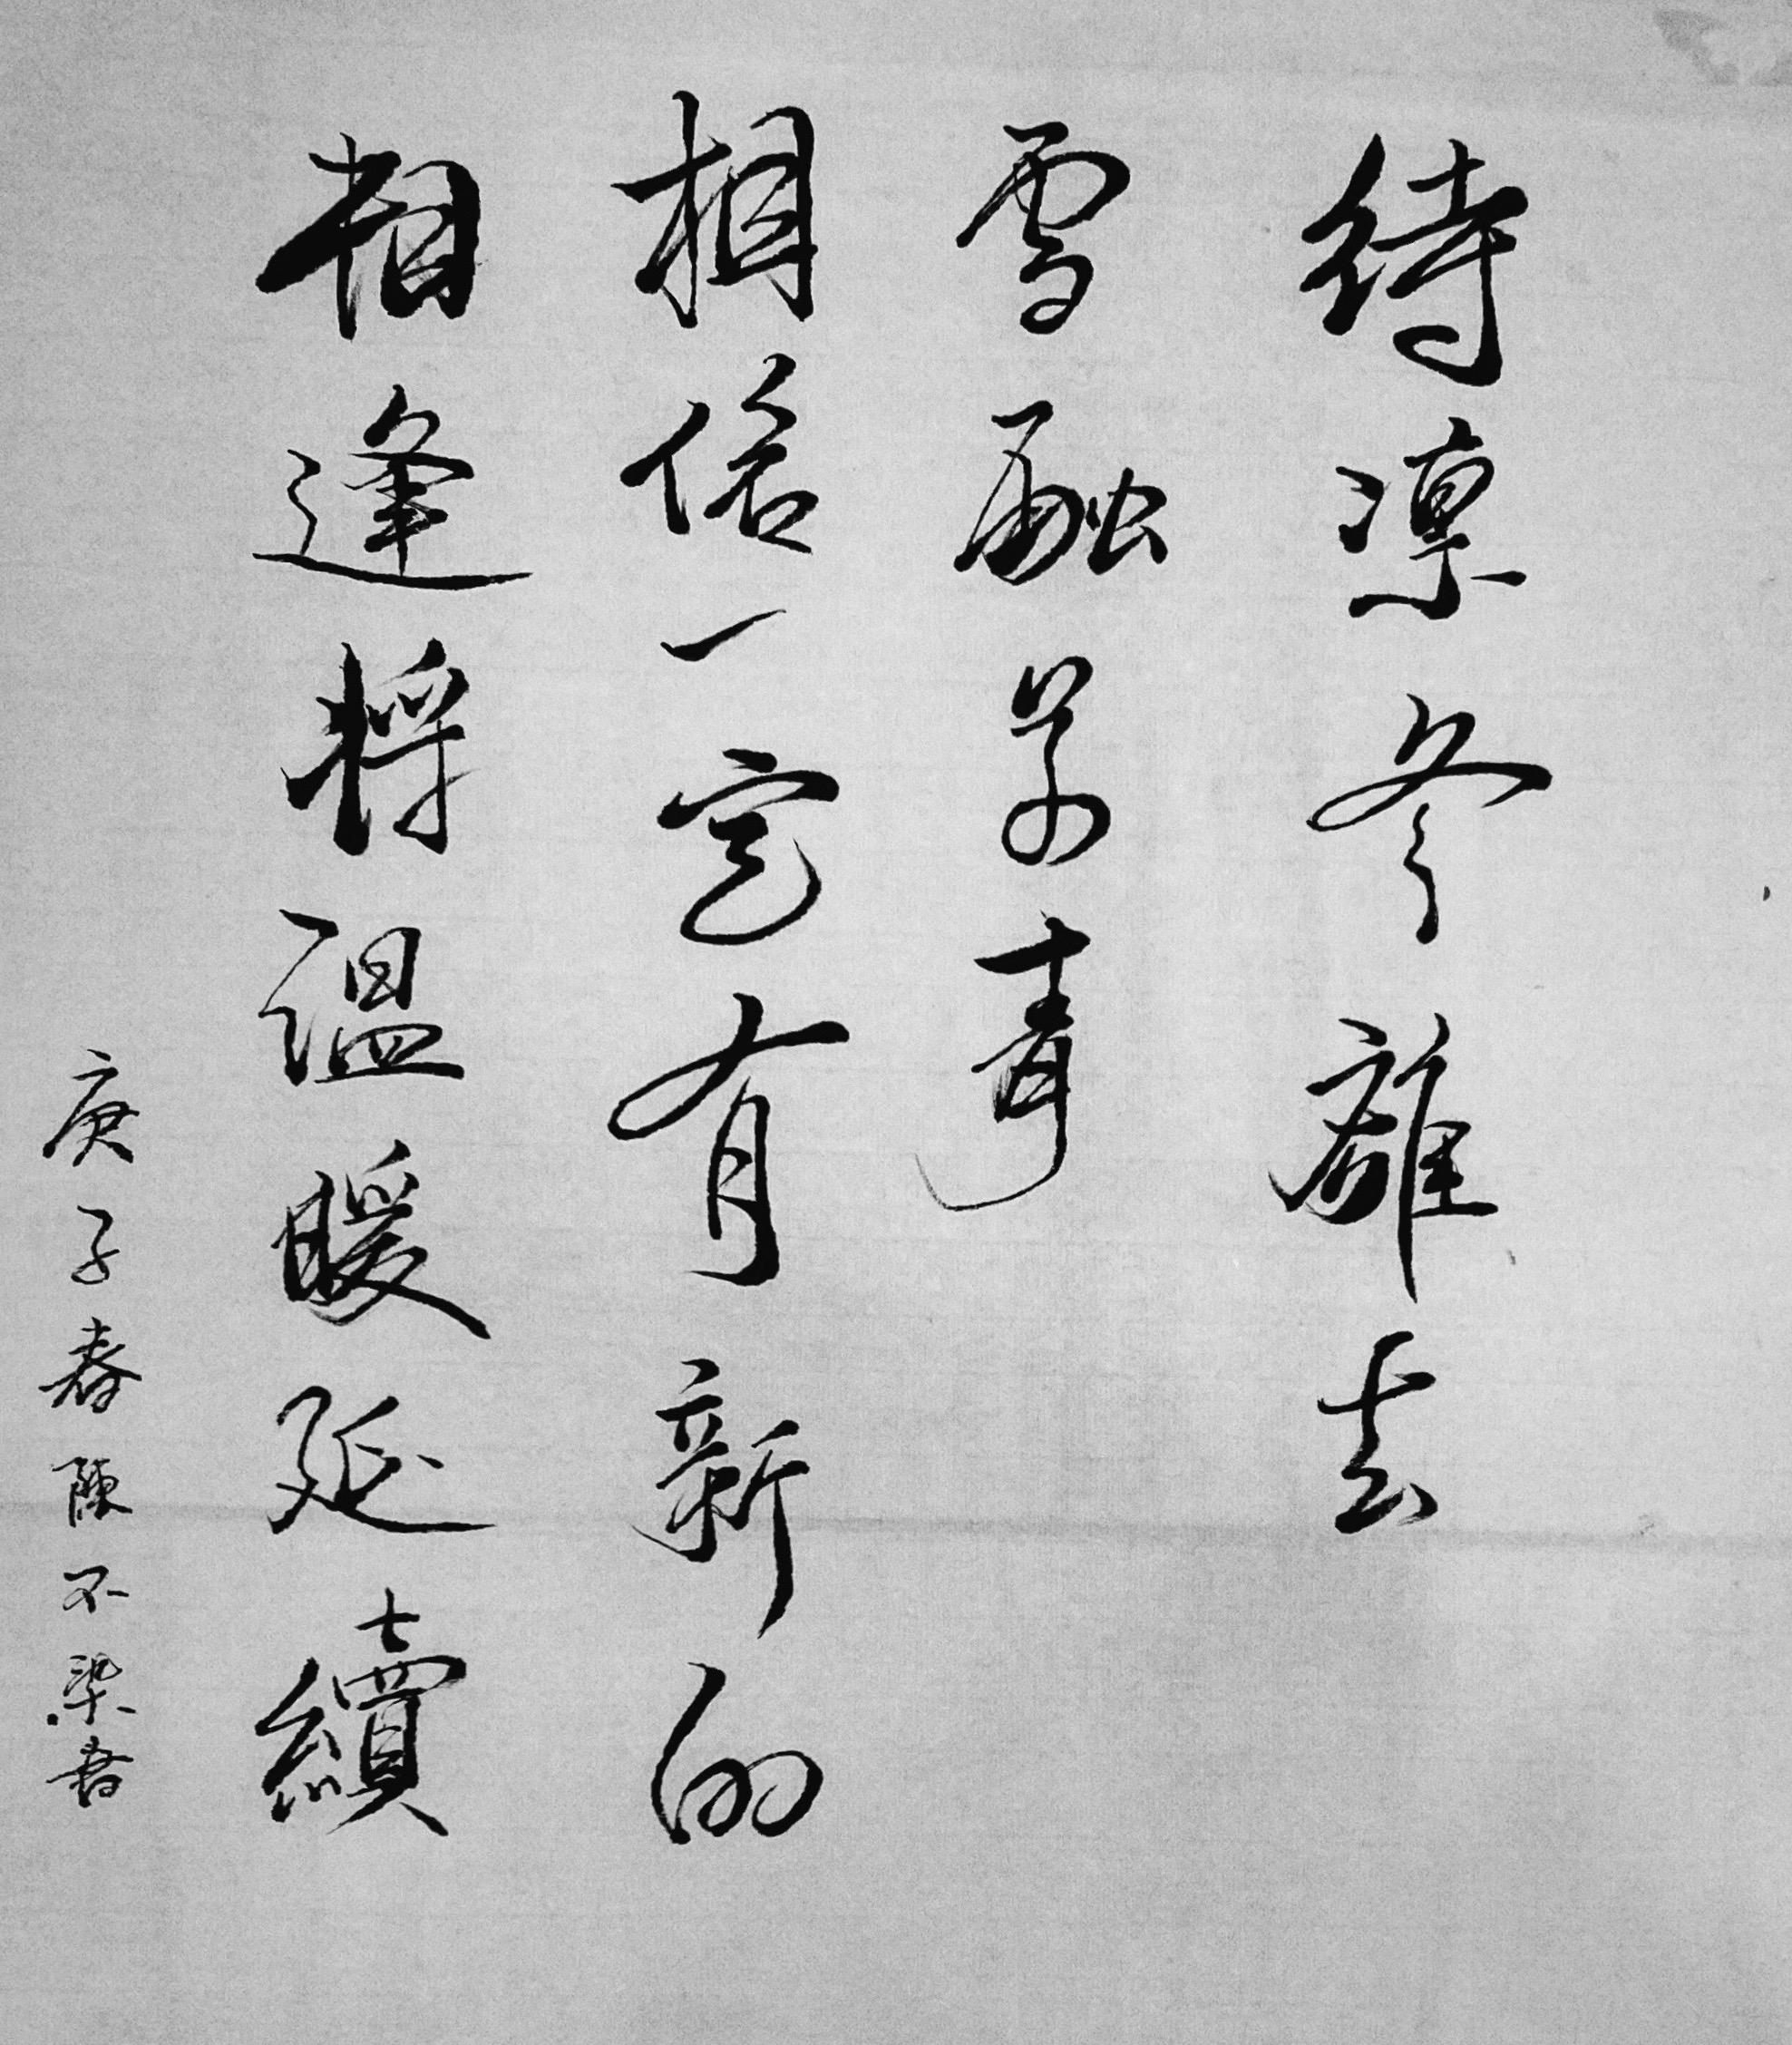 待凛冬離去
雪融草青
相信一定有新的
相逢將温暖延續
庚子春陳不染書